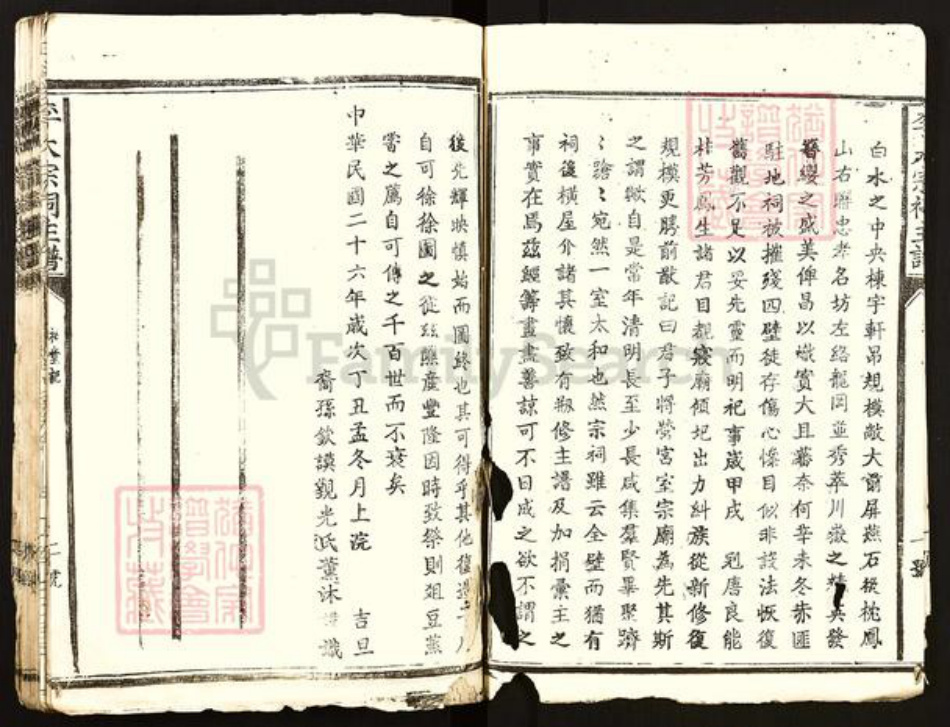 白水之中央棟宇軒昻規模敞大前屏燕石後枕鳳
山右聯忠孝名坊左絡龍岡並秀萃川嶽之精英發
簪纓之盛美俾昌以熾實大且蕃奈何辛未冬赤匪
駐地祠被摧殘四壁徒存傷心慘目似非設法恢復
舊觀不足以妥先靈而明祀事歲甲戌 冠唐良能
桂芳爲生諸君目覩寢廟傾圮出力糾族從新修復
規模更勝前猷記曰君子將營宮室宗廟為先其斯
之謂歟自是常年清明長至少長咸集羣賢畢聚躋
〻蹌〻宛然一室太和也然宗祠雖云全璧而猶有
祠後橫屋介諸其懷致有剏修主譜及加捐彙主之
事實在焉茲經籌畫盡善諒可不日成之欲不謂之
後先輝映慎始而圖終也其可得乎其他復
自可徐徐圖之從茲烝產豐隆因時致祭則俎豆蒸
嘗之薦自可傳之千百世而不衰矣
中華民國二十六年歲次丁丑孟冬月上浣 吉旦
裔孫欽謨觀光氏薰沐 識
李大宗祠主譜
FamilySearch